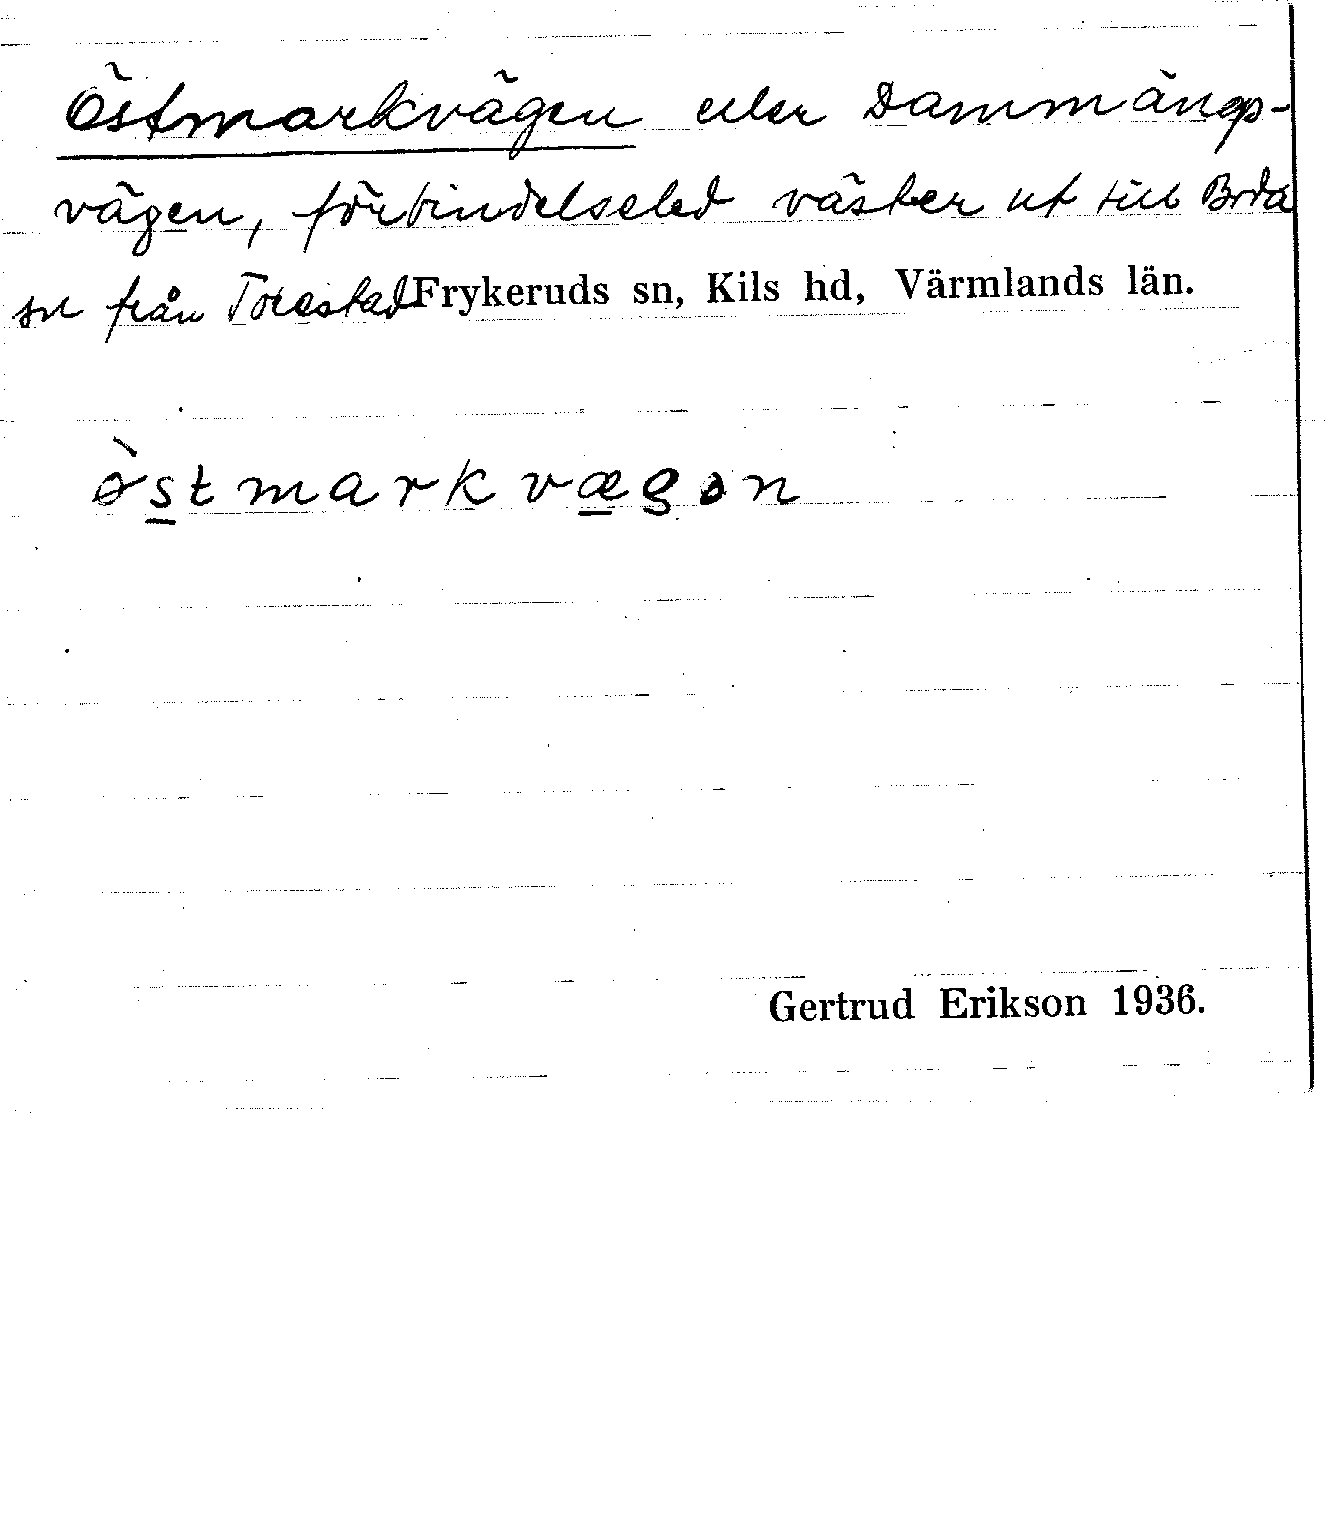 Östmarkvägen eller Dammängs-
vägen, förbindelseled väster ut till Boda
sn från Torestad Frykeruds sn, Kils hd, Värmlands län.
ö̀stmarkvægən
Gertrud Erikson 1936.